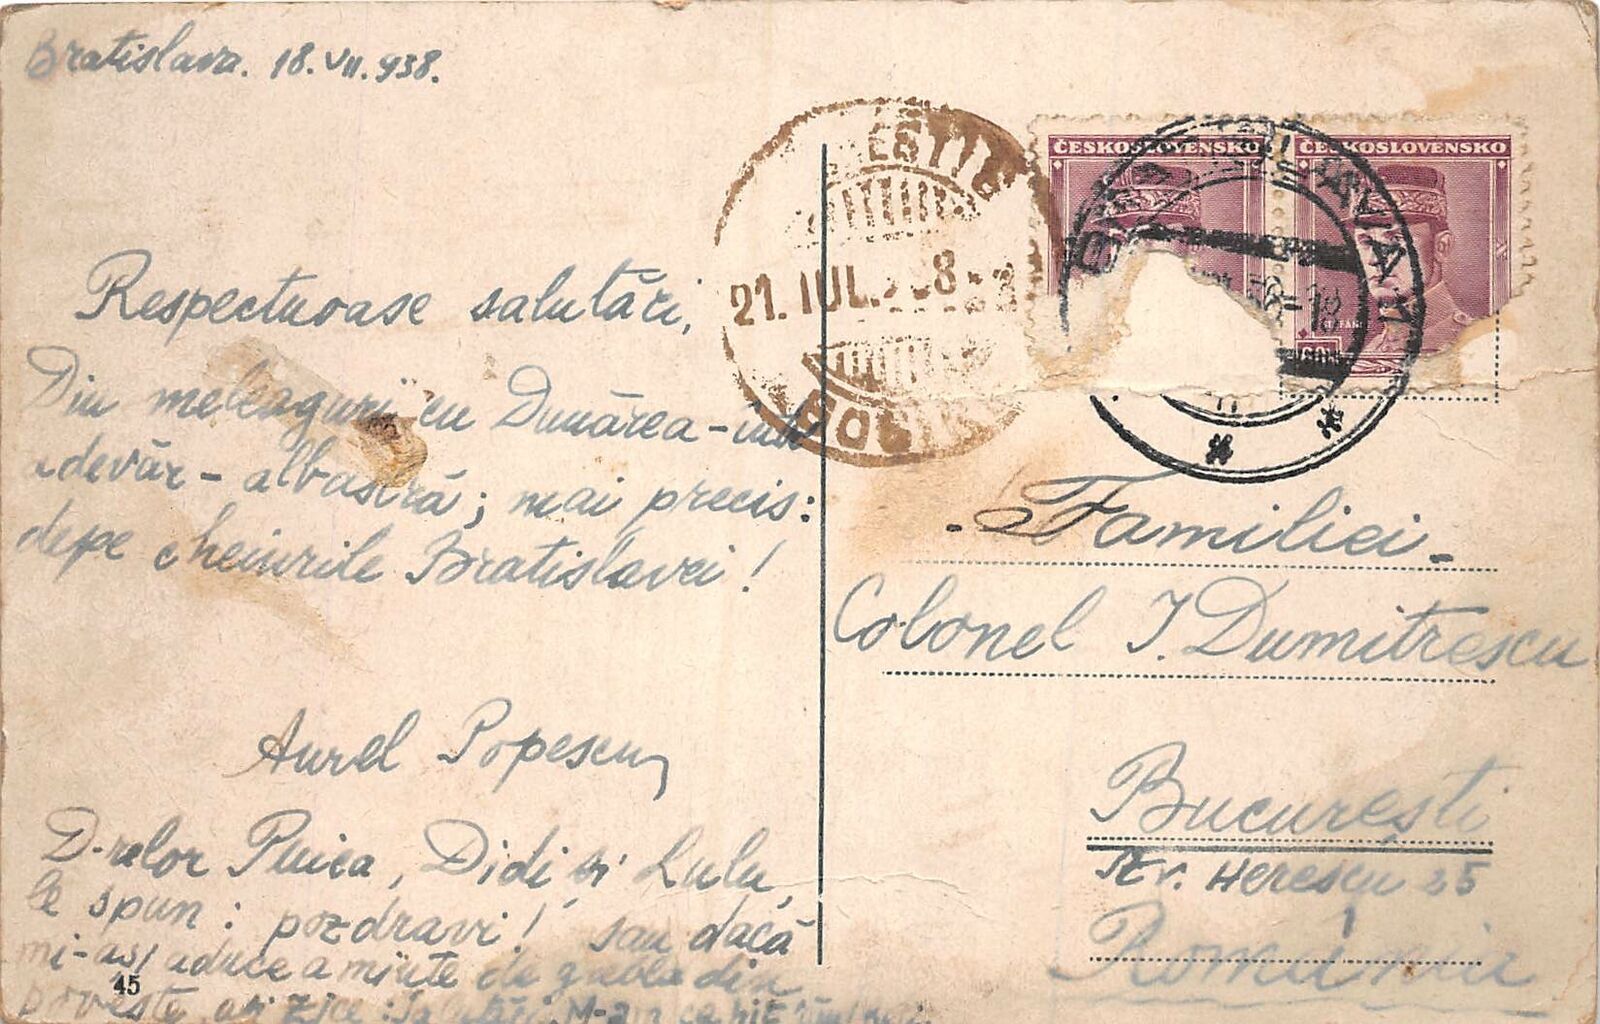 Bratislava. 18.VII.938.
Respectuoase salutări,
Din meleaguri cu Dunărea – într'
adevăr – albastră; mai precis:
depe cheiurile Bratislavei!
Aurel Popescu
D-relor Puica, Didi și Lulu,
le spun: pozdravi! sau dacă
mi-aș aduce aminte de gluma din
poveste, aș zice: Salutări
45
ČESKOSLOVENSKO
ČESKOSLOVENSKO
BRATISLAVA 1
21. IUL. 938
- Familiei -
Colonel I. Dumitrescu
București
Str. Herescu 25
România